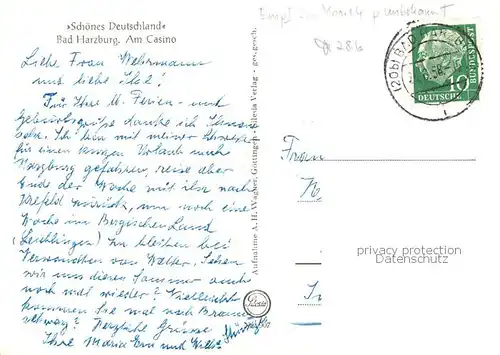 »Schönes Deutschland«
Bad Harzburg. Am Casino
Liebe Frau Wehrmann
und liebe Ilse!
Für Ihre U. Ferien- und
Geburtsgrüße danke ich Ihnen
sehr. Ich bin mit meiner Schwester
für einen kurzen Urlaub nach
Harzburg gefahren, reise aber
Ende der Woche mit ihr nach
Krefeld zurück, um noch eine
Woche im Bergischen Land
(Leichlingen) zu bleiben bei
Verwandten von Walter. Sehen
wir uns diesen Sommer auch
noch mal wieder? Vielleicht
kommen Sie mal nach Braun-
schweig? Herzliche Grüße
Ihre Maria und
Aufnahme A. H. Wagner, Göttingen - Verlag - ges. gesch.
Empf. unbekannt
28.6
(20b) BAD HARZBURG
10
DEUTSCHE BUNDESPOST
Frau
privacy protection
Datenschutz